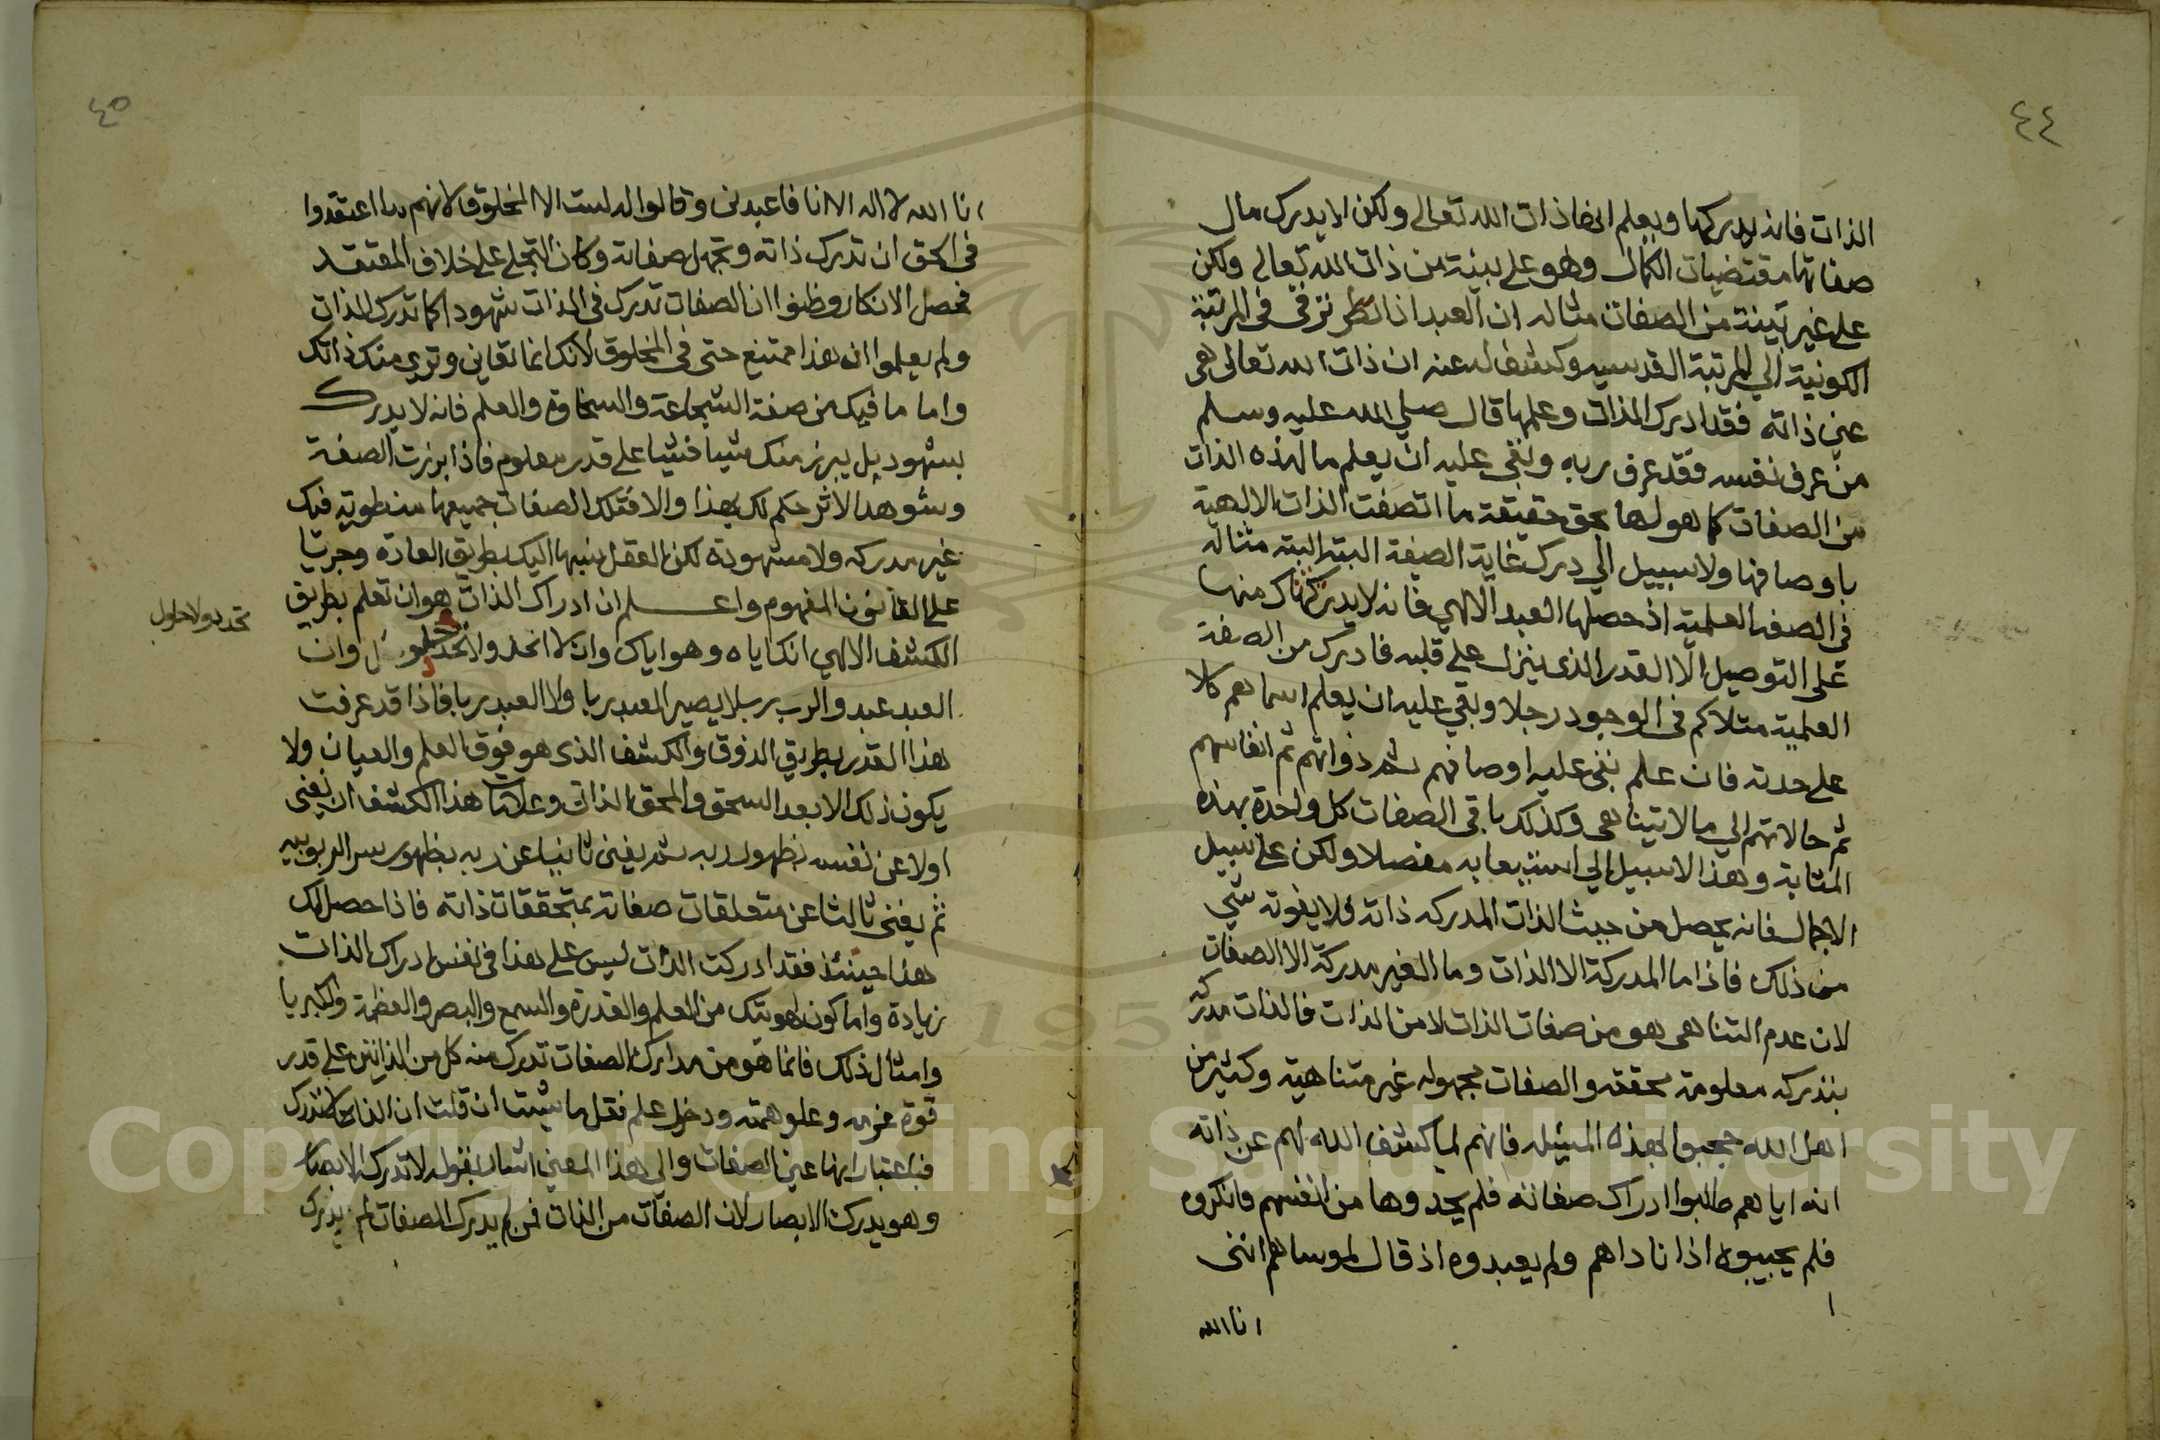 ٤٤
الذات فانه يدركها ويعلم انها ذات الله تعالى ولكن لا يدرك مال
صفاتها مقتضيات الكمال وهو على بينة من ذات الله تعالى ولكن
على غير بينة من الصفات مثاله ان العبد اذا ترقى في المرتبة
الكونية الي المرتبة القدسيه وكشف له عنه ان ذات الله تعالى هى
عين ذاته فقد ادرك الذات وعلمها قال صلي الله عليه وسلم
من عرف نفسه فقد عرف ربه وبقى عليه ان يعلم ما لهذه الذات
من الصفات كما هو لها بحق حقيقة ما اتصفت الذات الالهية
باوصافها ولا سبيل الي درك غاية الصفة البته البته مثاله
فى الصفه العلمية اذ حصلها العبد الالهي فانه لا يدرك منها
على التوصيل الا القدر الذى ينزل على قلبه فادرك من الصفة
العلمية مثلا كم فى الوجود رجلا وبقى عليه ان يعلم اسماهم كلا
على حدته فان علم بقى عليه اوصافهم ثم ذواتهم ثم انفاسهم
ثم حالاتهم الي ما لا يتناهى وكذلك باقى الصفات كل واحدة بهذه
المثابة وهذا لا سبيل الي استيعابه مفصلا ولكن على سبيل
الاجمال فانه يحصل من حيث الذات المدركه ذاته فلا يفوته شي
من ذلك فاذا ما المدركة الا الذات وما الغير مدركة الا الصفات
لان عدم التناهى هو من صفات الذات لا من الذات فالذات مدركه
معلومة محققه والصفات مجهوله غير متناهية وكثير من
اهل الله حجبوا بهذه المسئله فانهم لما كشف الله لهم عن ذاته
انه اياهم طلبوا ادراك صفاته فلم يجدوها من انفسهم فانكروه
فلم يجيبوه اذا ناداهم ولم يعبدوه اذ قال لموساهم اننى
انا الله
٤٥
انا الله لا اله الا انا فاعبدنى وقالوا له لست الا المخلوق لانهم ما اعتقدوا
فى الحق ان تدرك ذاته وتجهل صفاته وكان التجلي على خلاف المعتقد
فحصل الانكار وظنوا ان الصفات تدرك فى الذات شهودا كما تدرك الذات
ولم يعلموا ان هذا ممتنع حتى فى المخلوق لانك انما تعاين وترى منك ذاتك
واما ما فيك من صفة الشجاعة والسخاوة والعلم فانه لا يدرك
بشهود بل يبرز منك شيا فشيا على قدر معلوم فاذا برزت الصفة
وشوهد الاثر حكم لك بهذا والا فتلك الصفات جميعها منطوية فيك
غير مدركه ولا مشهودة لكن العقل ينسبها اليك بطريق العادة وجريا
على القانون المفهوم واعلم ان ادراك الذات هو ان تعلم بطريق
الكشف الالهي انك اياه وهو اياك وان لا اتحد ولا حلول وان
تحد ولا حلول
العبد عبد والرب رب لا يصير العبد ربا ولا العبد ربا فاذا قد عرفت
هذا القدر بطريق الذوق والكشف الذى هو فوق العلم والعيان ولا
يكون ذلك الا بعد السحق والمحق الذات وعلامات هذا الكشف ان يفنى
اولا عن نفسه بظهور ربه ثم يفنى ثانيا عن ربه بظهور سر الربوبيه
ثم يفنى ثالثا عن متعلقات صفاته بمتحققات ذاته فاذا حصل لك
هذا حينئذ فقد ادركت الذات ليس على هذا فى نفس ادراك الذات
زيادة واما كون هويتك من العلم والقدرة والسمع والبصر والعظمة والكبريا
وامثال ذلك فانما هو من مدارك الصفات تدرك منه كل من الذاتيين على قدر
قوة عزمه وعلو همته ودخول علمه فقل ما شئت ان قلت ان الذات لا تدرك
فباعتبار انها عين الصفات والى هذا المعنى اشار بقوله لا تدركه الابصار
وهو يدرك الابصار لان الصفات من الذات فمن لم يدرك الصفات لم يدرك
Copyright © King Saud University
1957